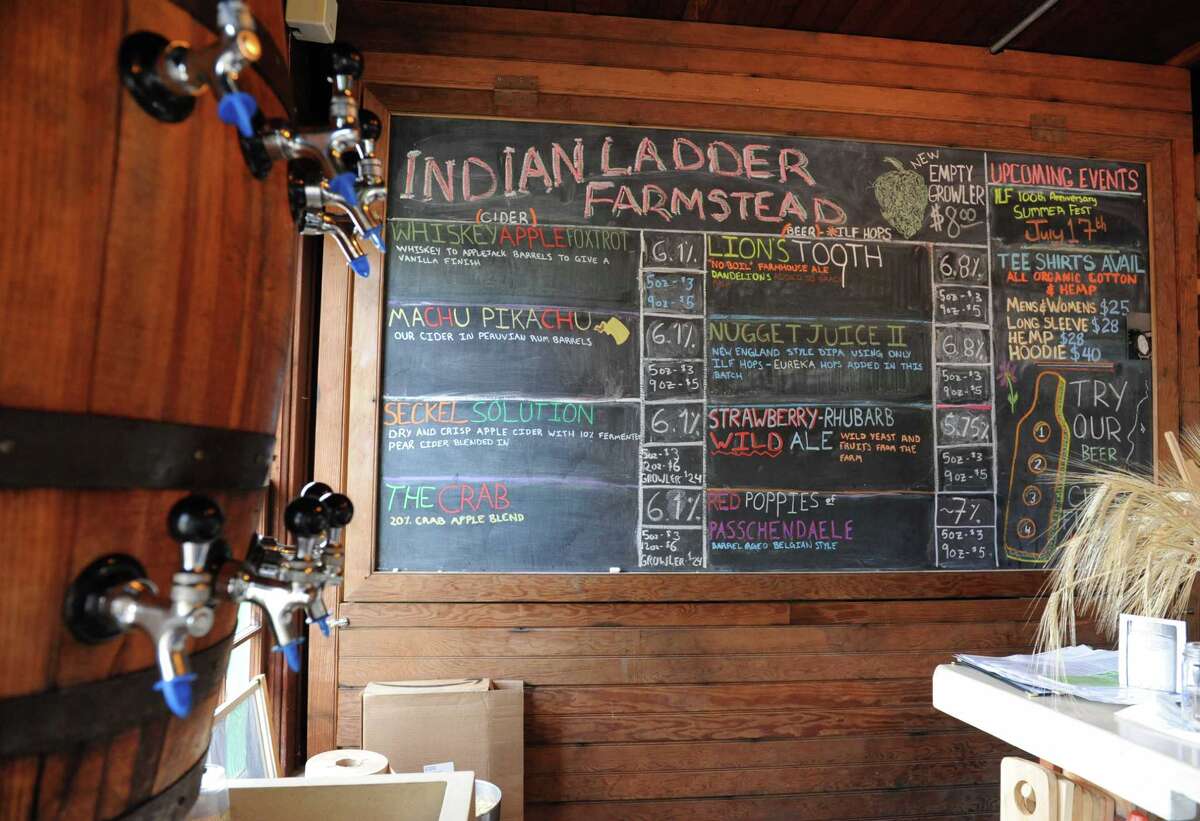 INDIAN LADDER
FARMSTEAD
NEW
EMPTY
GROWLER
$8.00
(CIDER)
WHISKEY APPLE FOXTROT
WHISKEY TO APPLEJACK BARRELS TO GIVE A
VANILLA FINISH
6.1%
5oz-$3
9oz-$5
MACHU PIKACHU
OUR CIDER IN PERUVIAN RUM BARRELS
6.1%
5oz-$3
9oz-$5
SECKEL SOLUTION
DRY AND CRISP APPLE CIDER WITH 10% FERMENTED
PEAR CIDER BLENDED IN
6.1%
5oz-$3
12oz-$6
GROWLER $24
THE CRAB
20% CRAB APPLE BLEND
6.1%
5oz-$3
12oz-$6
GROWLER $24
(BEER) *ILF HOPS
LION'S TOOTH
"NO BOIL" FARMHOUSE ALE
DANDELIONS
6.8%
5oz-$3
9oz-$5
NUGGET JUICE II
NEW ENGLAND STYLE DIPA USING ONLY
ILF HOPS - EUREKA HOPS ADDED IN THIS
BATCH
6.8%
5oz-$3
9oz-$5
STRAWBERRY-RHUBARB
WILD ALE WILD YEAST AND
FRUITS FROM THE
FARM
5.75%
5oz-$3
9oz-$5
RED POPPIES of
PASSCHENDAELE
BARREL AGED BELGIAN STYLE
~7%
5oz-$3
9oz-$5
UPCOMING EVENTS
ILF 100th Anniversary
SUMMER FEST
July 17th
TEE SHIRTS AVAIL
ALL ORGANIC COTTON
& HEMP
MENS & WOMENS $25
LONG SLEEVE $28
HEMP $28
HOODIE $40
TRY
OUR
BEER
1
2
3
4